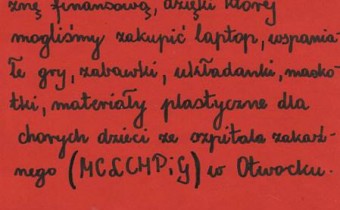 znę finansową, dzięki której
mogliśmy zakupić laptop, wspania-
łe gry, zabawki, układanki, masko-
tki, materiały plastyczne dla
chorych dzieci ze szpitala zakaź-
nego (MCLCHPiG) w Otwocku.